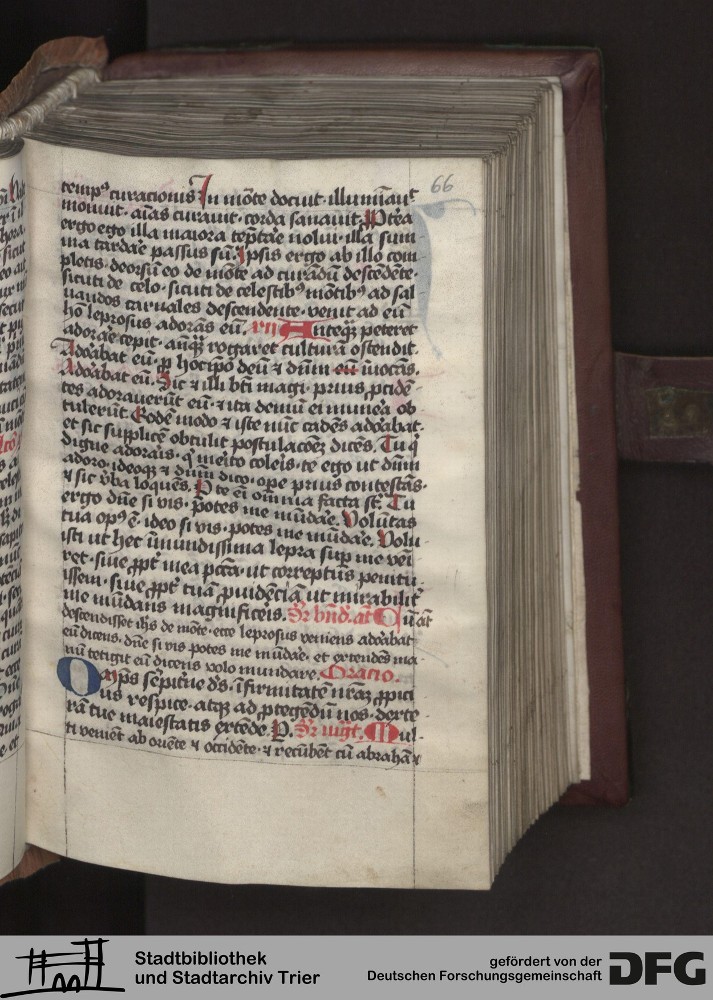 66
temp⁹ curacionis In mōte docuit · illumīauit
mouuit · aīas curauit · corda sanauit · Ptēa
ergo ego illa maiora teptāe nolui · illa sum
ma tardāe passus sū · Ipsis ergo ab illo com
pletis · deorsū eo de mōte ad curādū descēdēte ·
sicuti de celo · sicuti de celestib⁹ mōtib⁹ ad sal
uandos carnales descendente · venit ad eū
hō leprosus adorās eū · Anteq̄ peteret
adorāe cepit · anq̄ rogaret culturā ostendit ·
Adoabat eū · deū ⁊ dn̄m īuocās ·
Adoabat eū · Sic ⁊ illi btī magi · prius pcidē
tes adorauerūt eū · ⁊ ita demū ei munēa ob
tulerūt Eodē modo ⁊ iste nūc cadēs adoabat ·
et sic supplicē obtulit postulacoēȝ dicēs · Tu q̄
digne adorais · q̄ meito coleis · te ego ut dn̄m
adoro · ideoqȝ ⁊ dn̄m dico · ope prius contestās ·
⁊ sic v̄ba loquēs · P te eī omnia facta st̄ · Tu
ergo dn̄e si vis · potes me mūdāe · Voluntas
tua op⁹ ē · ideo si vis · potes me mūdāe · Volu
isti ut hec īmundissima lepra sup me veī
ret · siue ꝓpt mea pctā · ut correptus penitu
issem · siue ꝓpt tuā ꝓuidēciā ut mirabilit
me mūdans magnificeis · Sr bn̄d · an̄ Cū āt
descendisset ih̄s de mōte · ecce leprosus veniens adoābat
eū dicens · dn̄e si vis potes me mūdāe · et extendēs ma
nū tetigit eū dicens volo mundare · Oracio ·
Oīps sēpitne ds̄ · īfirmitatē nr̄aȝ ꝓpici
us respice · atqȝ ad ꝓtegēdū nos · dexte
rā tue maiestatis extēde · P · Sr mgt · Mul
ti veniēt ab oriēte ⁊ occidēte · ⁊ recūbēt cū abrahā ⁊
Stadtbibliothek
und Stadtarchiv Trier
gefördert von der
Deutschen Forschungsgemeinschaft
DFG